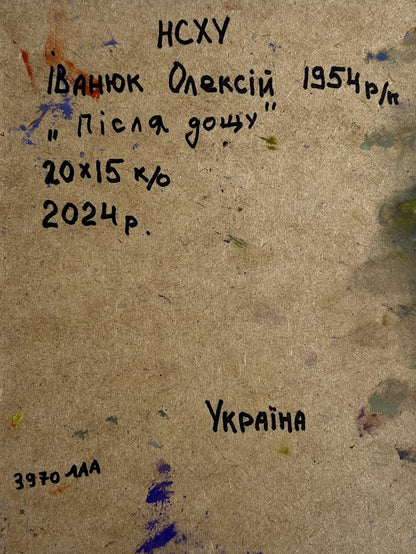 НСХУ
Іванюк Олексій 1954 р/н
„Після дощу"
20х15 к/о
2024 р.
Україна
3970 ЛЛА